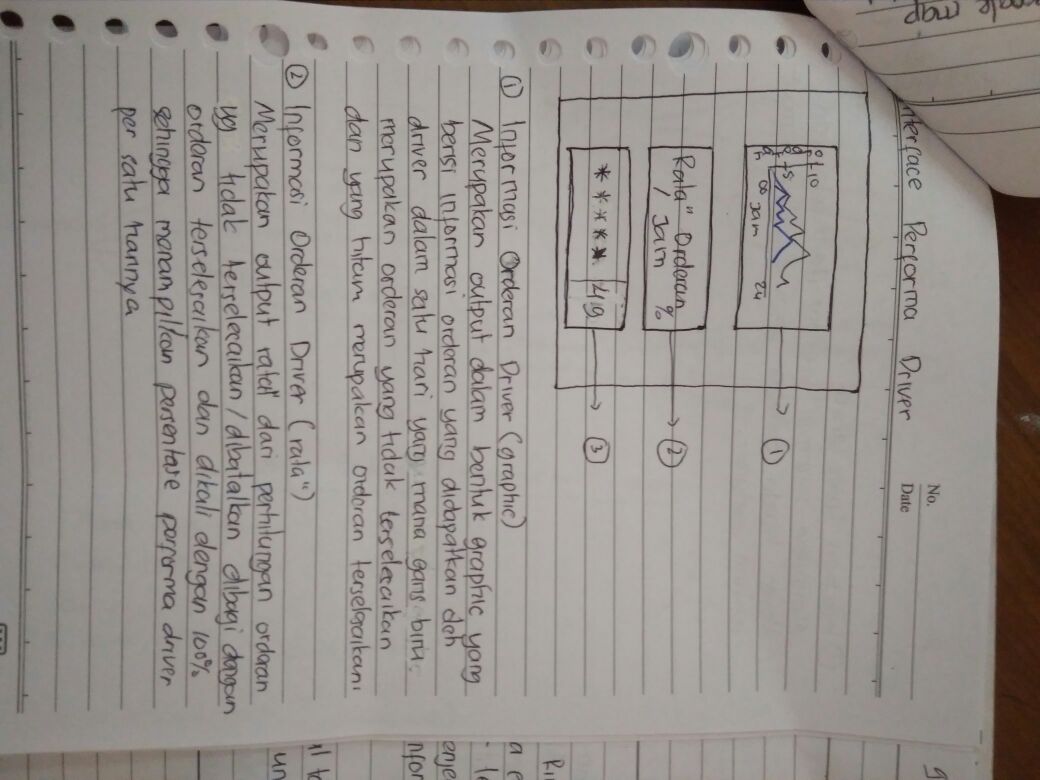 oogle map
No.
nterface Performa Driver
Date
10
5
00 Jam 24
1
Rata" Orderan
/ Jam %
2
* * * * * 49
3
1 Informasi Orderan Driver (graphic)
Merupakan output dalam bentuk graphic yang
berisi informasi orderan yang didapatkan oleh
driver dalam satu hari yang mana garis biru
merupakan orderan yang tidak terselesaikan
dan yang hitam merupakan orderan terselesaikan.
2 Informasi Orderan Driver (rata")
Merupakan output rata" dari perhitungan orderan
yg tidak terselesaikan/dibatalkan dibagi dengan
orderan terselesaikan dan dikali dengan 100%
sehingga menampilkan persentase performa driver
per satu harinya
g
Ri
a e
enje
nfor
al to
un